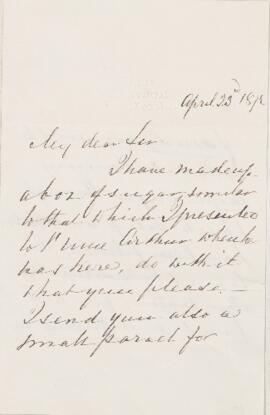 April 23rd 187
My dear Sir
I have made up
a box of sugar, similar
to that which I presented
to Prince Arthur when he
was here, do with it
what you please. —
I send you also a
small parcel for